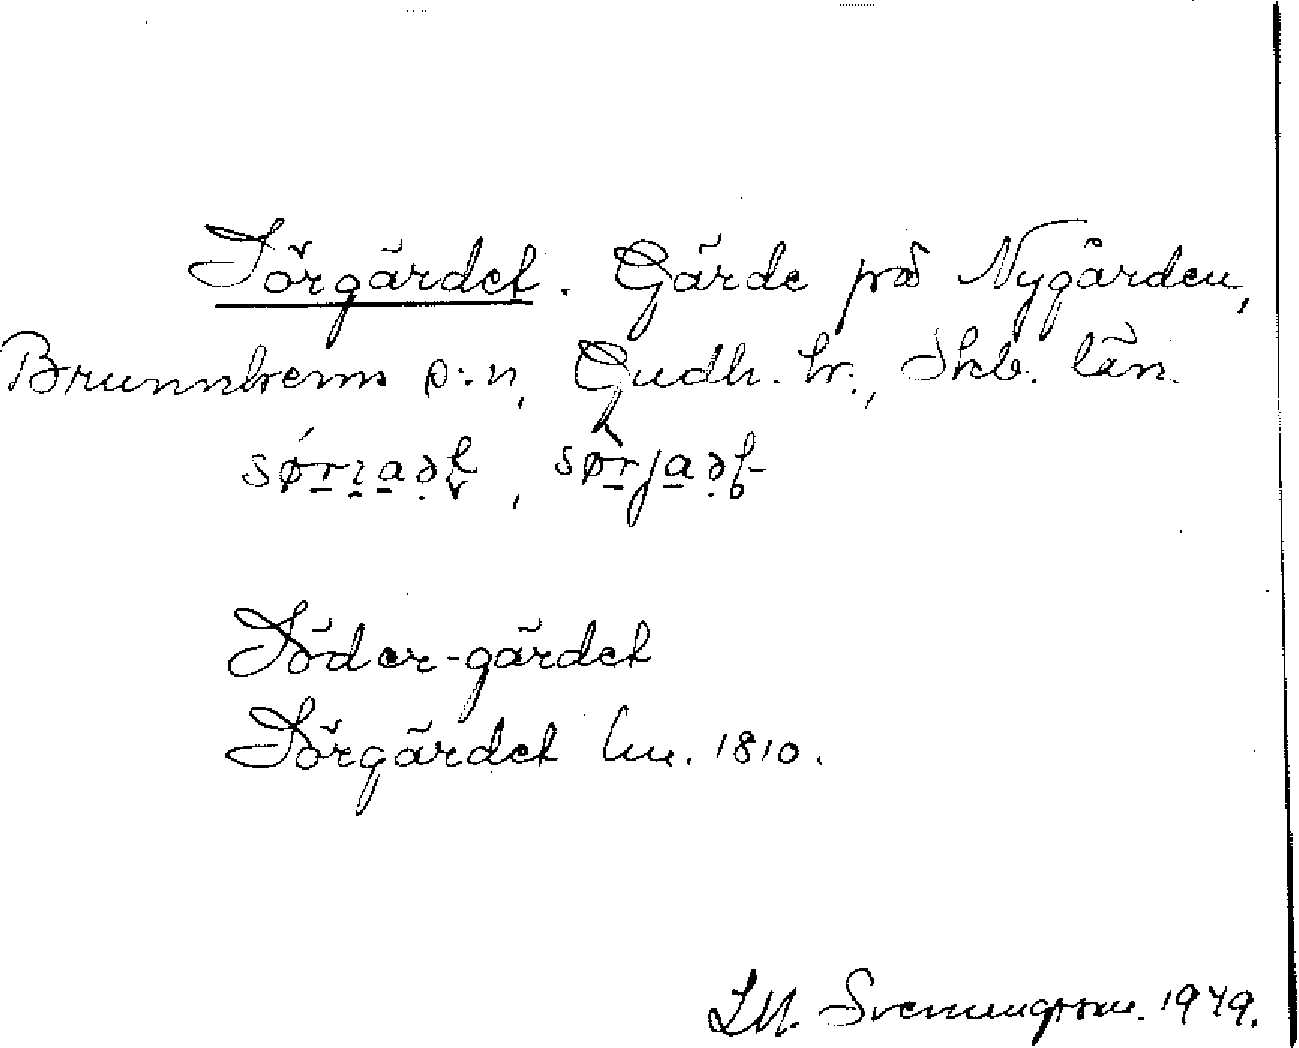 Sörgärdet. Gärde på Nygården,
Brunnhems s:n, Gudh. hr., Skb. län.
Söder-gärdet
Sörgärdet Lm. 1810.
Svenungsson. 1949.